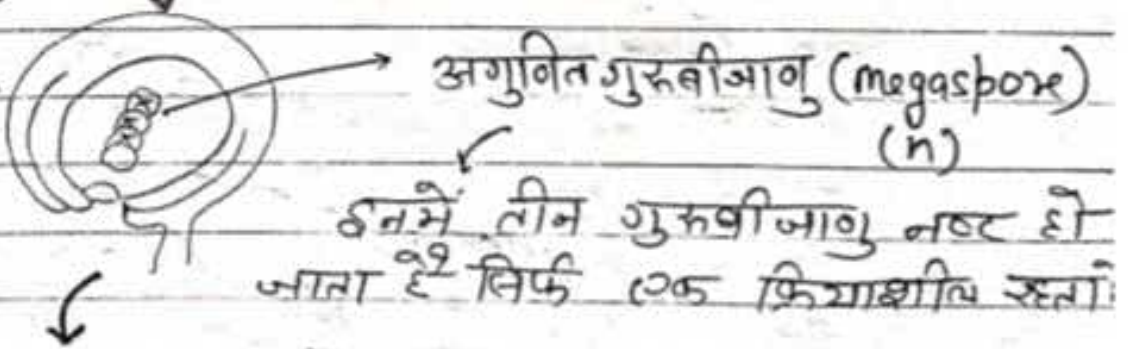 अगुणित गुरुबीजाणु (megaspore)
(n)
इनमें तीन गुरुबीजाणु नष्ट हो
जाता है सिर्फ एक क्रियाशील रहता